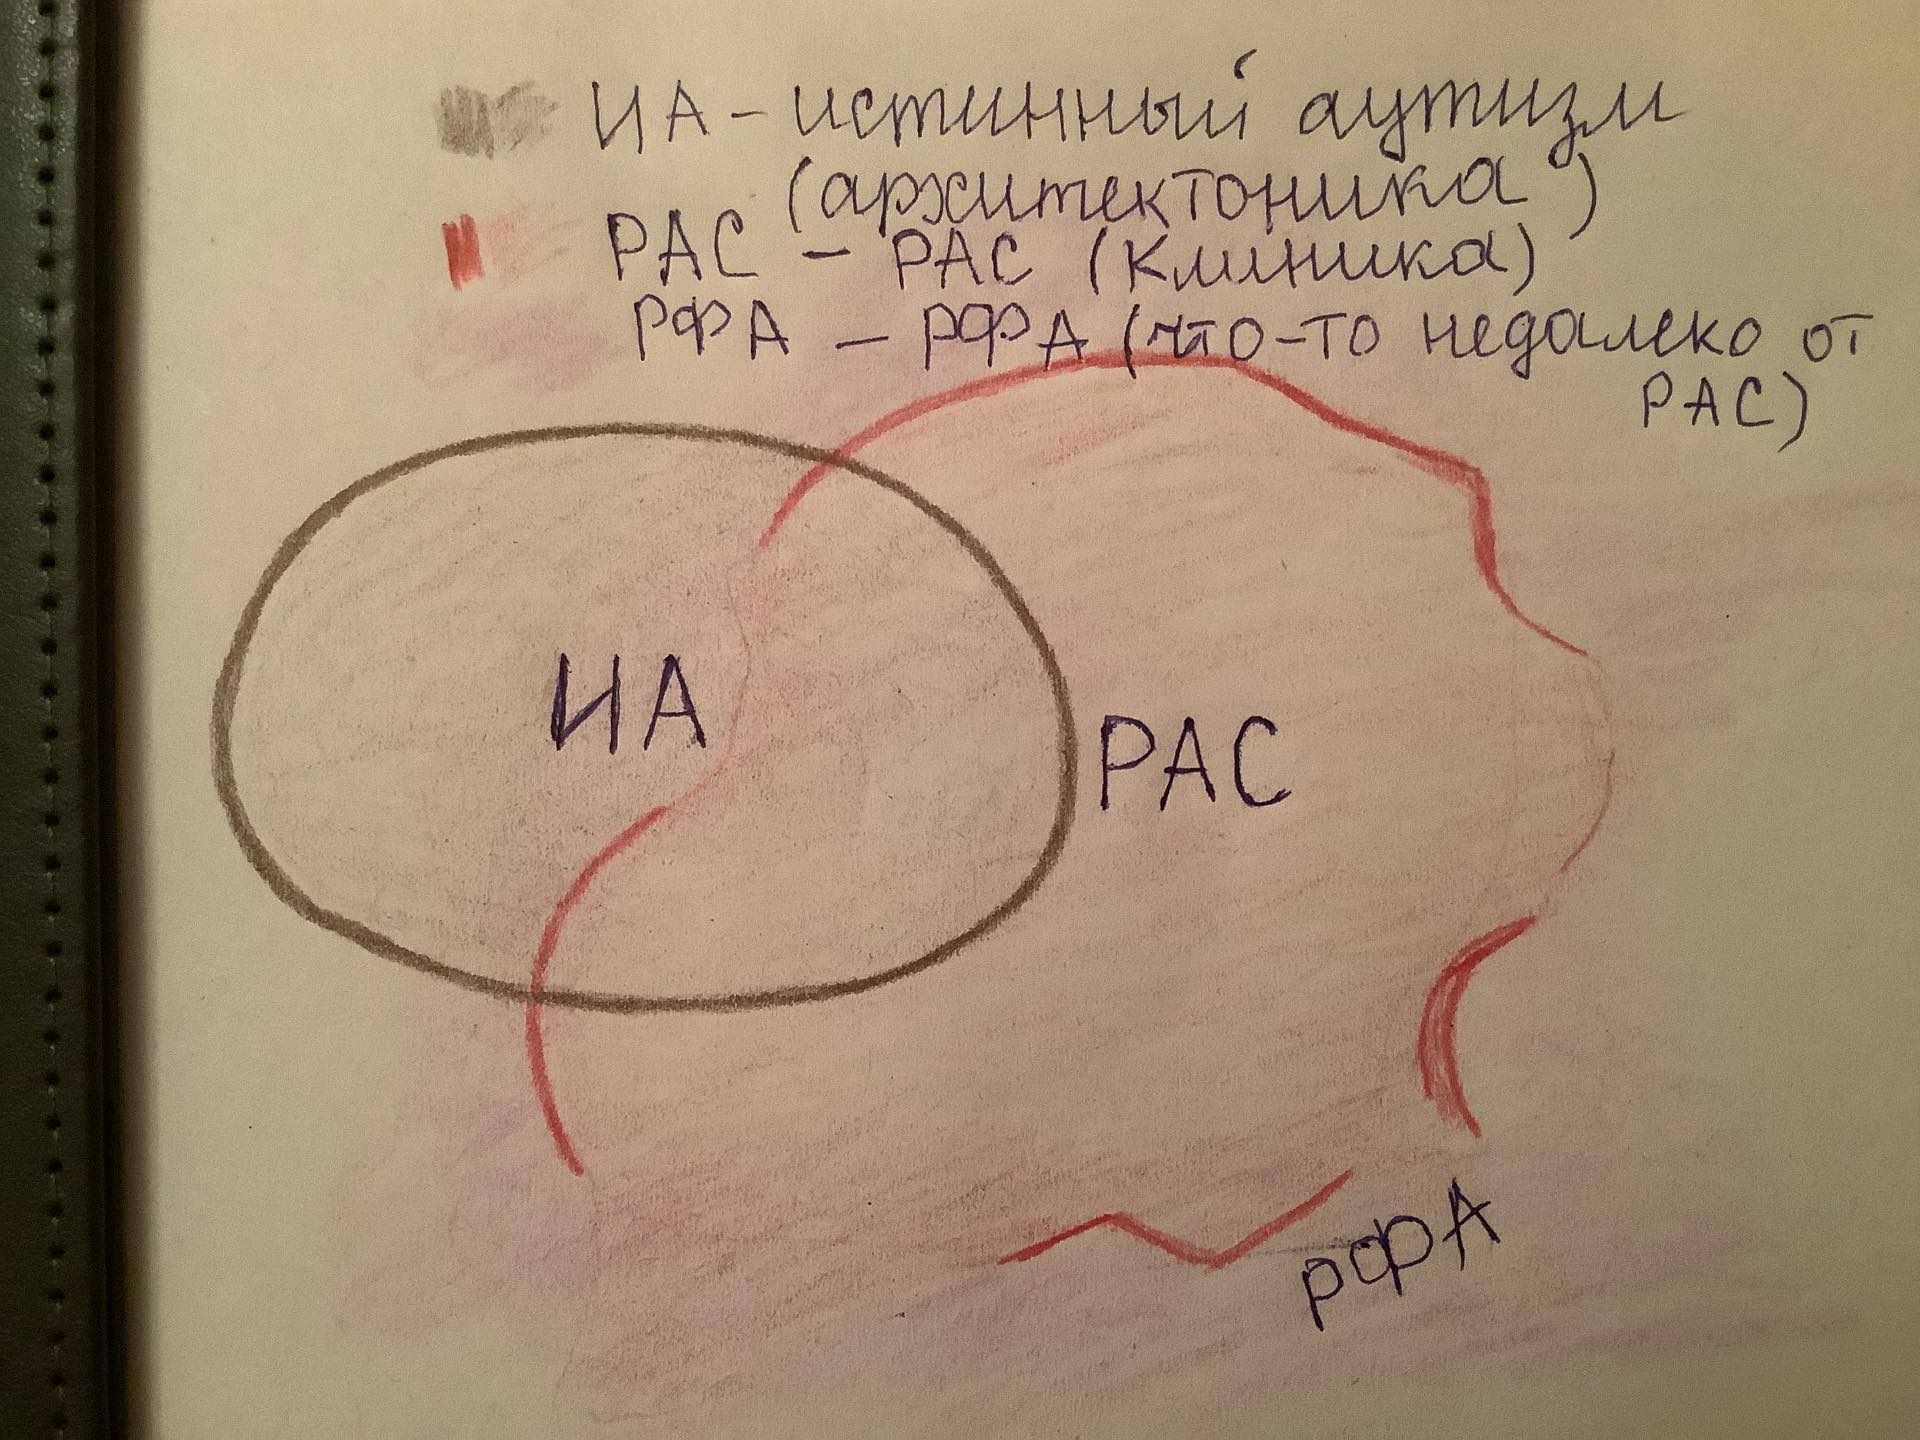 ИА - истинный аутизм
(архитектоника)
РАС - РАС (клиника)
РФА - РФА (что-то недалеко от
РАС)
ИА
РАС
РФА